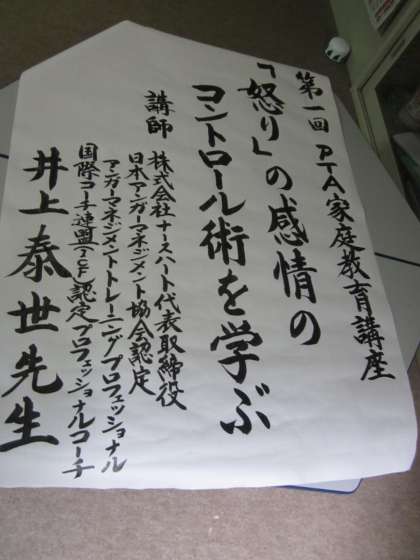 第一回 PTA家庭教育講座
「怒り」の感情の
コントロール術を学ぶ
講師
株式会社ナースハート代表取締役
日本アンガーマネジメント協会認定
アンガーマネジメントトレーニングプロフェッショナル
国際コーチ連盟ICF認定プロフェッショナルコーチ
井上泰世先生